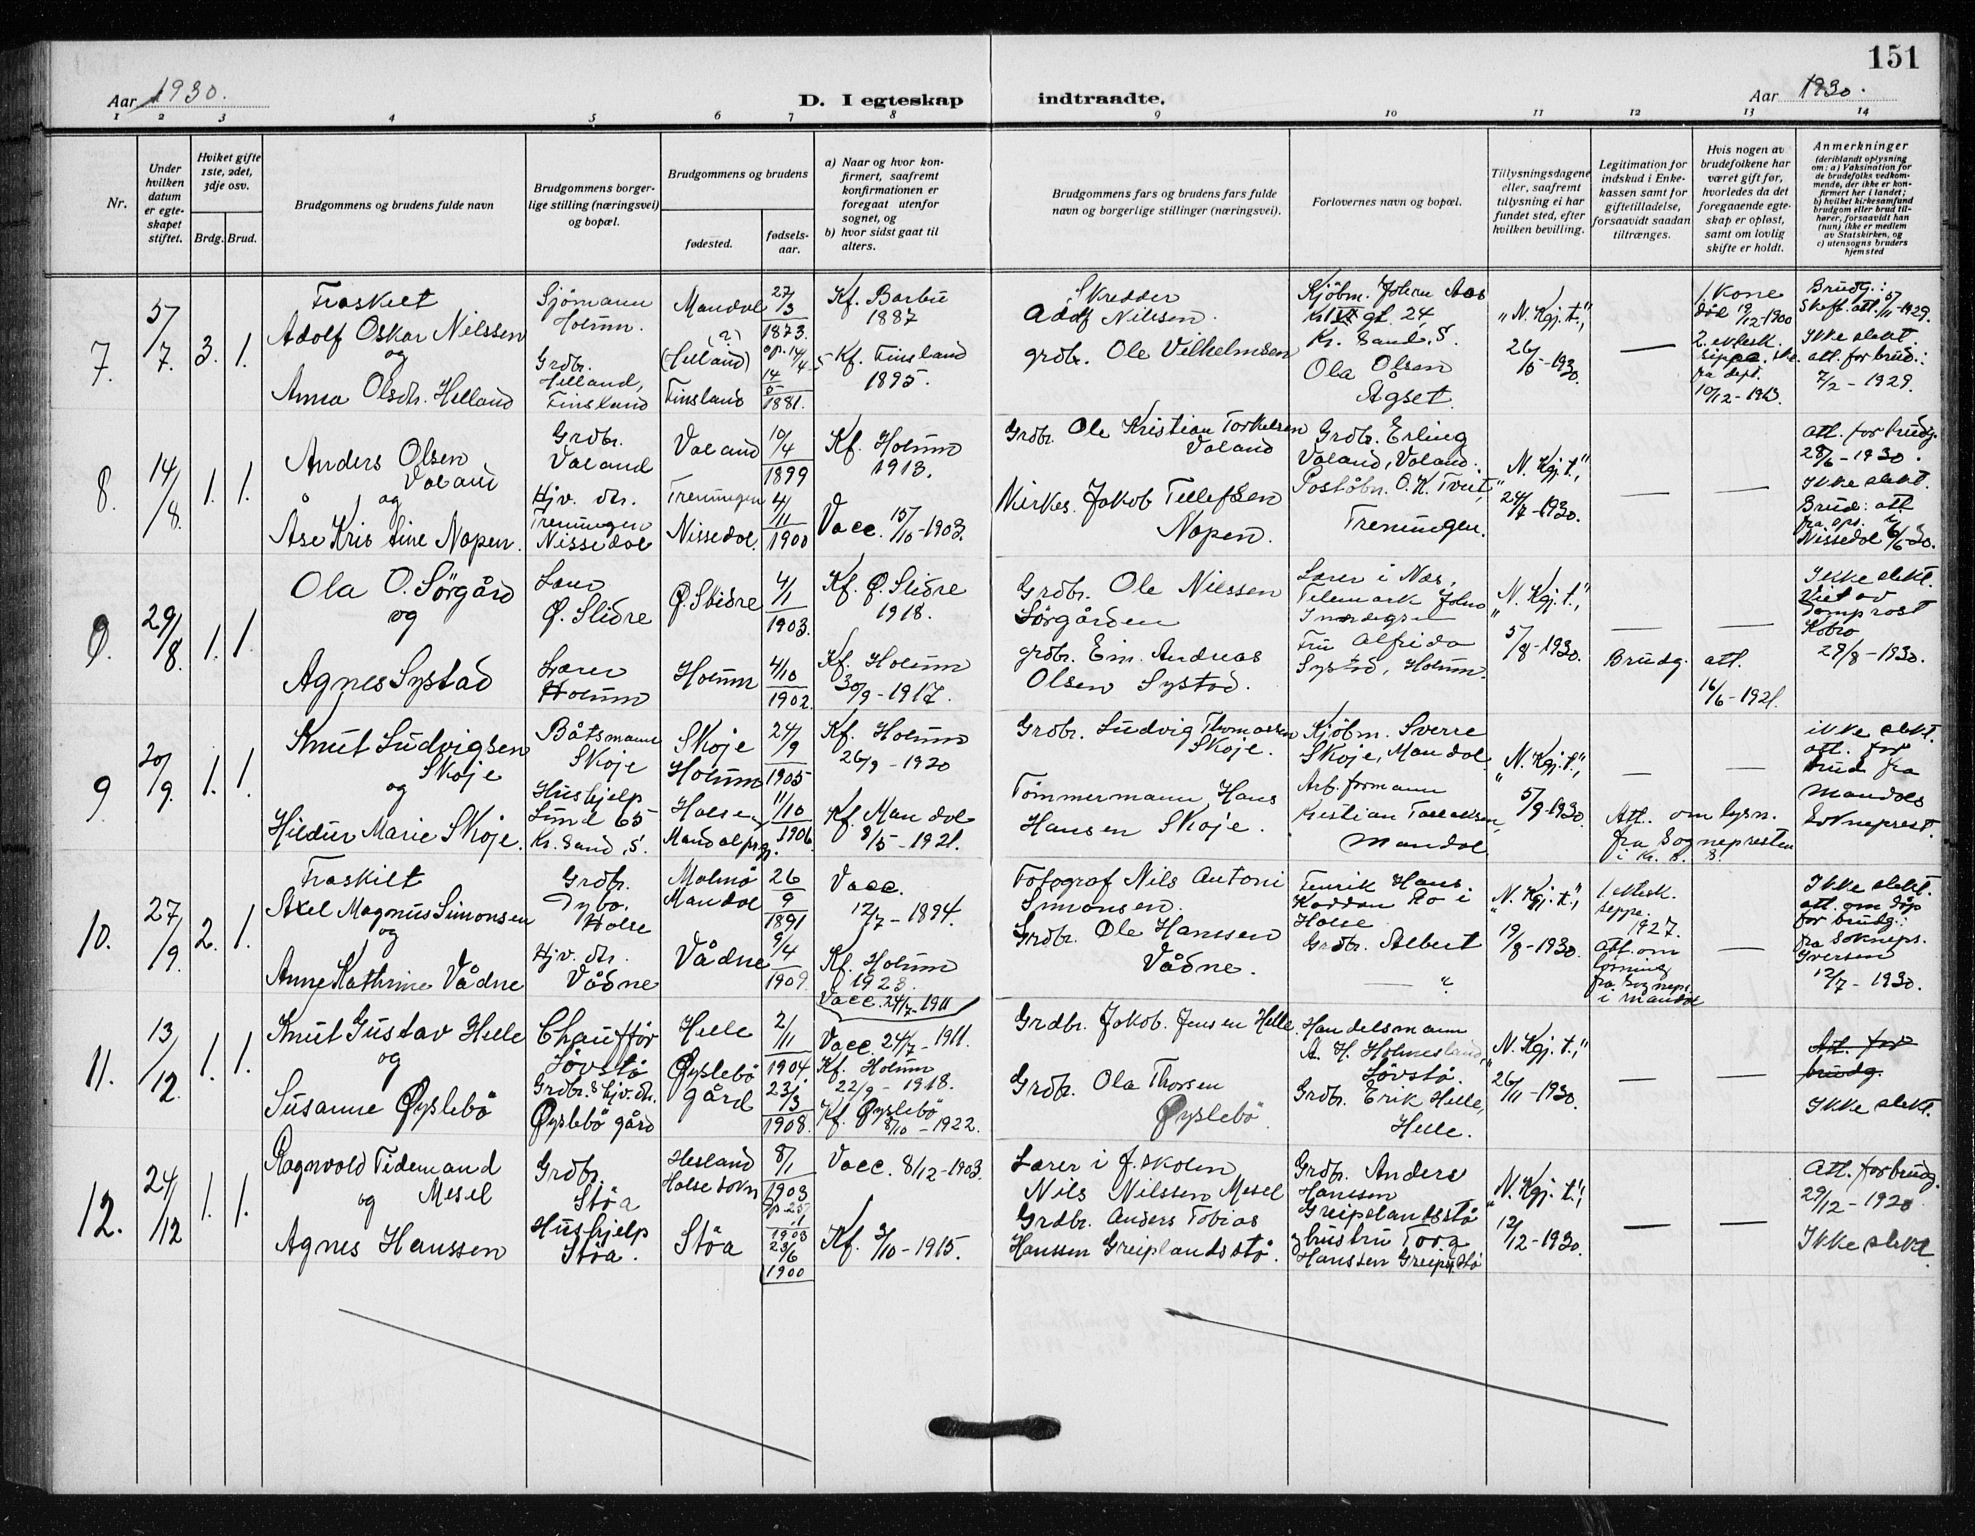 151
Aar 1930.
D. I egteskap indtraadte.
Aar 1930.
1 2 3 4 5 6 7 8 9 10 11 12 13 14
Nr.
Under hvilken datum er egteskapet stiftet.
Hviket gifte 1ste, 2det, 3dje osv.
Brdg. Brud.
Brudgommens og brudens fulde navn
Brudgommens borgerlige stilling (næringsvei) og bopæl.
Brudgommens og brudens
fødested.
fødselsaar.
a) Naar og hvor konfirmert, saafremt konfirmationen er foregaat utenfor sognet, og
b) hvor sidst gaat til alters.
Brudgommens fars og brudens fars fulde navn og borgerlige stillinger (næringsvei).
Forlovernes navn og bopæl.
Tillysningsdagene eller, saafremt tillysning ei har fundet sted, efter hvilken bevilling.
Legitimation for indskud i Enkekassen samt for giftetilladelse, forsaavidt saadan tiltrænges.
Hvis nogen av brudefolkene har været gift før, hvorledes da det foregaaende egteskap er opløst, samt om lovlig skifte er holdt.
Anmerkninger
(deriblandt oplysning om: a) Vaksination for de brudefolks vedkommende, der ikke er konfirmert her i landet; b) hvilket kirkesamfund brudgom eller brud tilhører, forsaavidt han (hun) ikke er medlem av Statskirken, og c) utensogns bruders hjemsted
7. 5/7. 3. 1.
Fraskilt
Adolf Oskar Nilssen
og
Anna Olsdr. Helland
Sjømann
Holum.
Grdbr.
Helland,
Finsland
Mandal
(Helland)
Finsland
27/3
1873.
14/5
1881.
Kf. Barbu
1887
Kf. Finsland
1895.
Skredder
Adolf Nilsen.
grdbr. Ole Vilhelmsen
Kjøbm. Johan Aas
gt. 24
Kr. Sand. S.
Ola Olsen
Agset.
"N. Kgj. t.",
26/5-1930.
—
1 kone
død 19/12-1900
2. ektesk.
fra dept.
Brudg.:
Ikke slekt.
att. for brud.:
7/2 - 1929.
8. 14/8. 1. 1.
Anders Olsen
Valand
og
Åse Kristine Napen.
Grdbr.
Valand
Hjv. dtr.
Treningen
Nissedal
Valand
Treningen
Nissedal.
10/4
1899
4/11
1900
Kf. Holum
1913.
Vacc. 15/10-1903.
Grdbr. Ole Kristian Torkelsen
Valand
Kirkes. Jakob Tellefsen
Napen.
Grdbr. Erling
Valand, Valand.
Poståbn. O. K. Tveit,
Treningen.
"N. Kgj. t.",
24/7-1930.
— —
att. for brudg.
28/6 - 1930.
Ikke slekt.
Brud: att.
fra sps. i
Nissedal 6/6-30.
9. 29/8. 1. 1.
Ola O. Sørgård
og
Agnes Systad
Lærer
Ø. Slidre
Lærer
Holum
Ø. Slidre
Holum
4/1
1903.
4/10
1902.
Kf. Ø. Slidre
1918.
Kf. Holum
30/9 - 1917.
Grdbr. Ole Nilssen
Sørgården
grdbr. Em. Andreas
Olsen Systad.
Lærer i Næs,
Telemark John
Fru Alfrida
Systad, Holum.
"N. Kgj. t.",
5/8-1930.
— —
Brudg. att.
16/6 - 1921.
Ikke slekt.
Viet av
Domprost
Kobro
29/8 - 1930.
9 20/9. 1. 1.
Knut Ludvigsen
Skøje
og
Hildur Marie Skøje.
Båtsmann
Skøje
Hushjelp
Lund 65
Kr. Sand. S.
Skøje
Holum
Halse
Mandal prgj.
24/9
1905
11/10
1906.
Kf. Holum
26/9 - 1920
Kf. Mandal
8/5 - 1921.
Grdbr. Ludvig Thomassen
Skøje.
Tømmermann Hans
Hansen Skøje.
Kjøbm. Sverre
Skøje, Mandal
Arb. formann
Kristian Tallaksen,
Mandal.
"N. Kgj. t.",
5/9-1930.
— —
Att. om lysn.
fra Sognepresten
i Kr. S. S.
ikke slekt.
att. for
brud fra
Mandals
Sokneprest.
10. 27/9. 2. 1.
Fraskilt
Axel Magnus Simonsen
og
Anne Kathrine Vådne
Grdbr.
Halse
Hjv. dtr.
Vådne
Malmø
Mandal
Vådne
26/9
1891
9/4
1909.
Vacc.
12/7 - 1894.
Kf. Holum
1923.
Vacc. 24/7-1911
Fotograf Nils Antoni
Simonsen.
Grdbr. Ole Hanssen
Vådne.
Henrik Hans.
Halse
Grdbr. Albert
— "
"N. Kgj. t.",
19/8-1930.
1 ektesk.
1927.
Att. om
lysning
fra Sognepr.
i Mandal
—
Ikke slekt.
att. om dåp
for brudg.:
fra Soknepr.
Iversen
12/7 - 1930.
11. 13/12. 1. 1.
Knut Gustav Helle
og
Susanne Øyslebø
Chauffør
Løvstø
Grdbr. & hjv. dtr.
Øyslebø gård
Helle
Øyslebø
gård
2/11
1904
23/3
1908.
Vacc. 24/7-1911.
Kf. Holum
22/9 - 1918.
Kf. Øyslebø
8/10 - 1922.
Grdbr. Jakob. Jensen Helle.
Grdbr. Ola Thorsen
Øyslebø.
Handelsmann
A. H. Holmesland,
Løvstø.
Grdbr. Erik Helle,
Helle.
"N. Kgj. t.",
26/11-1930.
— —
Att. for
brudg.
Ikke slekt.
12. 24/12 1. 1.
Ragnvald Tidemand
og Mesel
Agnes Hanssen
Grdbr.
Støa
Hushjelp
Støa.
Hesland
Halse sokn
Støa
8/1
1903
23/6
1900
Vacc. 8/12-1903.
Kf. 3/10-1915.
Lærer i f. skolen
Nils Nilssen Mesel
Grdbr. Anders Tobias
Hanssen Greiplandsstø.
Grdbr. Anders
Hanssen
Greipslandsstø
Hanssen
"N. Kgj. t.",
12/12-1930.
— —
Att. for brudg.
29/12 - 1920
Ikke slekt.